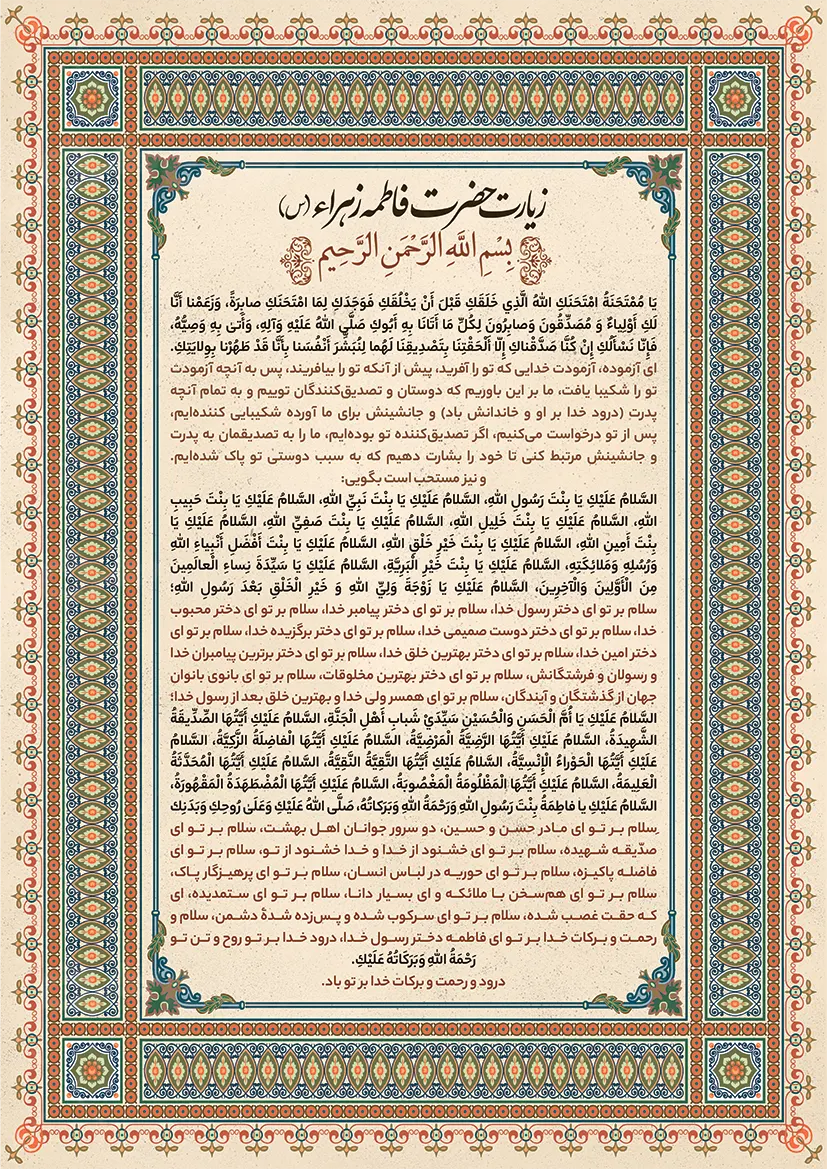 زیارت حضرت فاطمه زهراء (س)
بِسْمِ اللَّهِ الرَّحْمَنِ الرَّحِيمِ
يَا مُمْتَحَنَةُ امْتَحَنَكِ اللهُ الَّذِي خَلَقَكِ قَبْلَ أَنْ يَخْلُقَكِ فَوَجَدَكِ لِمَا امْتَحَنَكِ صابِرَةً، وَزَعَمْنا أَنَّا
لَكِ أَوْلِياءٌ وَ مُصَدِّقُونَ وَصابِرُونَ لِكُلِّ مَا أَتَانَا بِهِ أَبُوكِ صَلَّى اللهُ عَلَيْهِ وَآلِهِ، وَأَتىٰ بِهِ وَصِيُّهُ،
فَإِنّا نَسْأَلُكِ إِنْ كُنَّا صَدَّقْناكِ إِلّا أَلْحَقْتِنَا بِتَصْدِيقِنَا لَهُما لِنُبَشِّرَ أَنْفُسَنا بِأَنَّا قَدْ طَهُرْنا بِوِلايَتِكِ.
ای آزموده، آزمودت خدایی که تو را آفرید، پیش از آنکه تو را بیافریند، پس به آنچه آزمودت
تو را شکیبا یافت، ما بر این باوریم که دوستان و تصدیق‌کنندگان توییم و به تمام آنچه
پدرت (درود خدا بر او و خاندانش باد) و جانشینش برای ما آورده شکیبایی کننده‌ایم،
پس از تو درخواست می‌کنیم، اگر تصدیق‌کننده تو بوده‌ایم، ما را به تصدیقمان به پدرت
و جانشینش مرتبط کنی تا خود را بشارت دهیم که به سبب دوستی تو پاک شده‌ایم.
و نیز مستحب است بگویی:
السَّلامُ عَلَيْكِ يَا بِنْتَ رَسُولِ اللهِ، السَّلامُ عَلَيْكِ يَا بِنْتَ نَبِيِّ اللهِ، السَّلامُ عَلَيْكِ يَا بِنْتَ حَبِيبِ
اللهِ، السَّلامُ عَلَيْكِ يَا بِنْتَ خَلِيلِ اللهِ، السَّلامُ عَلَيْكِ يَا بِنْتَ صَفِيِّ اللهِ، السَّلامُ عَلَيْكِ يَا
بِنْتَ أَمِينِ اللهِ، السَّلامُ عَلَيْكِ يَا بِنْتَ خَيْرِ خَلْقِ اللهِ، السَّلامُ عَلَيْكِ يَا بِنْتَ أَفْضَلِ أَنْبِياءِ اللهِ
وَرُسُلِهِ وَمَلائِكَتِهِ، السَّلامُ عَلَيْكِ يَا بِنْتَ خَيْرِ الْبَرِيَّةِ، السَّلامُ عَلَيْكِ يَا سَيِّدَةَ نِساءِ الْعالَمِينَ
مِنَ الْأَوَّلِينَ وَالْآخِرِينَ، السَّلامُ عَلَيْكِ يَا زَوْجَةَ وَلِيِّ اللهِ وَ خَيْرِ الْخَلْقِ بَعْدَ رَسُولِ اللهِ؛
سلام بر تو ای دختر رسول خدا، سلام بر تو ای دختر پیامبر خدا، سلام بر تو ای دختر محبوب
خدا، سلام بر تو ای دختر دوست صمیمی خدا، سلام بر تو ای دختر برگزیده خدا، سلام بر تو ای
دختر امین خدا، سلام بر تو ای دختر بهترین خلق خدا، سلام بر تو ای دختر برترین پیامبران خدا
و رسولان و فرشتگانش، سلام بر تو ای دختر بهترین مخلوقات، سلام بر تو ای بانوی بانوان
جهان از گذشتگان و آیندگان، سلام بر تو ای همسر ولی خدا و بهترین خلق بعد از رسول خدا؛
السَّلامُ عَلَيْكِ يَا أُمَّ الْحَسَنِ وَالْحُسَيْنِ سَيِّدَيْ شَبابِ أَهْلِ الْجَنَّةِ، السَّلامُ عَلَيْكِ أَيَّتُهَا الصِّدِّيقَةُ
الشَّهِيدَةُ، السَّلامُ عَلَيْكِ أَيَّتُهَا الرَّضِيَّةُ الْمَرْضِيَّةُ، السَّلامُ عَلَيْكِ أَيَّتُهَا الْفاضِلَةُ الزَّكِيَّةُ، السَّلامُ
عَلَيْكِ أَيَّتُهَا الْحَوْراءُ الْإِنْسِيَّةُ، السَّلامُ عَلَيْكِ أَيَّتُهَا التَّقِيَّةُ النَّقِيَّةُ، السَّلامُ عَلَيْكِ أَيَّتُهَا الْمُحَدَّثَةُ
الْعَلِيمَةُ، السَّلامُ عَلَيْكِ أَيَّتُهَا الْمَظْلُومَةُ الْمَغْصُوبَةُ، السَّلامُ عَلَيْكِ أَيَّتُهَا الْمُضْطَهَدَةُ الْمَقْهُورَةُ،
السَّلامُ عَلَيْكِ يا فاطِمَةُ بِنْتَ رَسُولِ اللهِ وَرَحْمَةُ اللهِ وَبَرَكاتُهُ، صَلَّى اللهُ عَلَيْكِ وَعَلَىٰ رُوحِكِ وَبَدَنِكِ
سلام بر تو ای مادر حسن و حسین، دو سرور جوانان اهل بهشت، سلام بر تو ای
صدّیقه شهیده، سلام بر تو ای خشنود از خدا و خدا خشنود از تو، سلام بر تو ای
فاضله پاکیزه، سلام بر تو ای حوریه در لباس انسان، سلام بر تو ای پرهیزگار پاک،
سلام بر تو ای هم‌سخن با ملائکه و ای بسیار دانا، سلام بر تو ای ستمدیده، ای
که حقت غصب شده، سلام بر تو ای سرکوب شده و پس‌زده شدهٔ دشمن، سلام و
رحمت و برکات خدا بر تو ای فاطمه دختر رسول خدا، درود خدا بر تو و روح و تن تو
رَحْمَةُ اللهِ وَبَرَكَاتُهُ عَلَيْكِ.
درود و رحمت و برکات خدا بر تو باد.